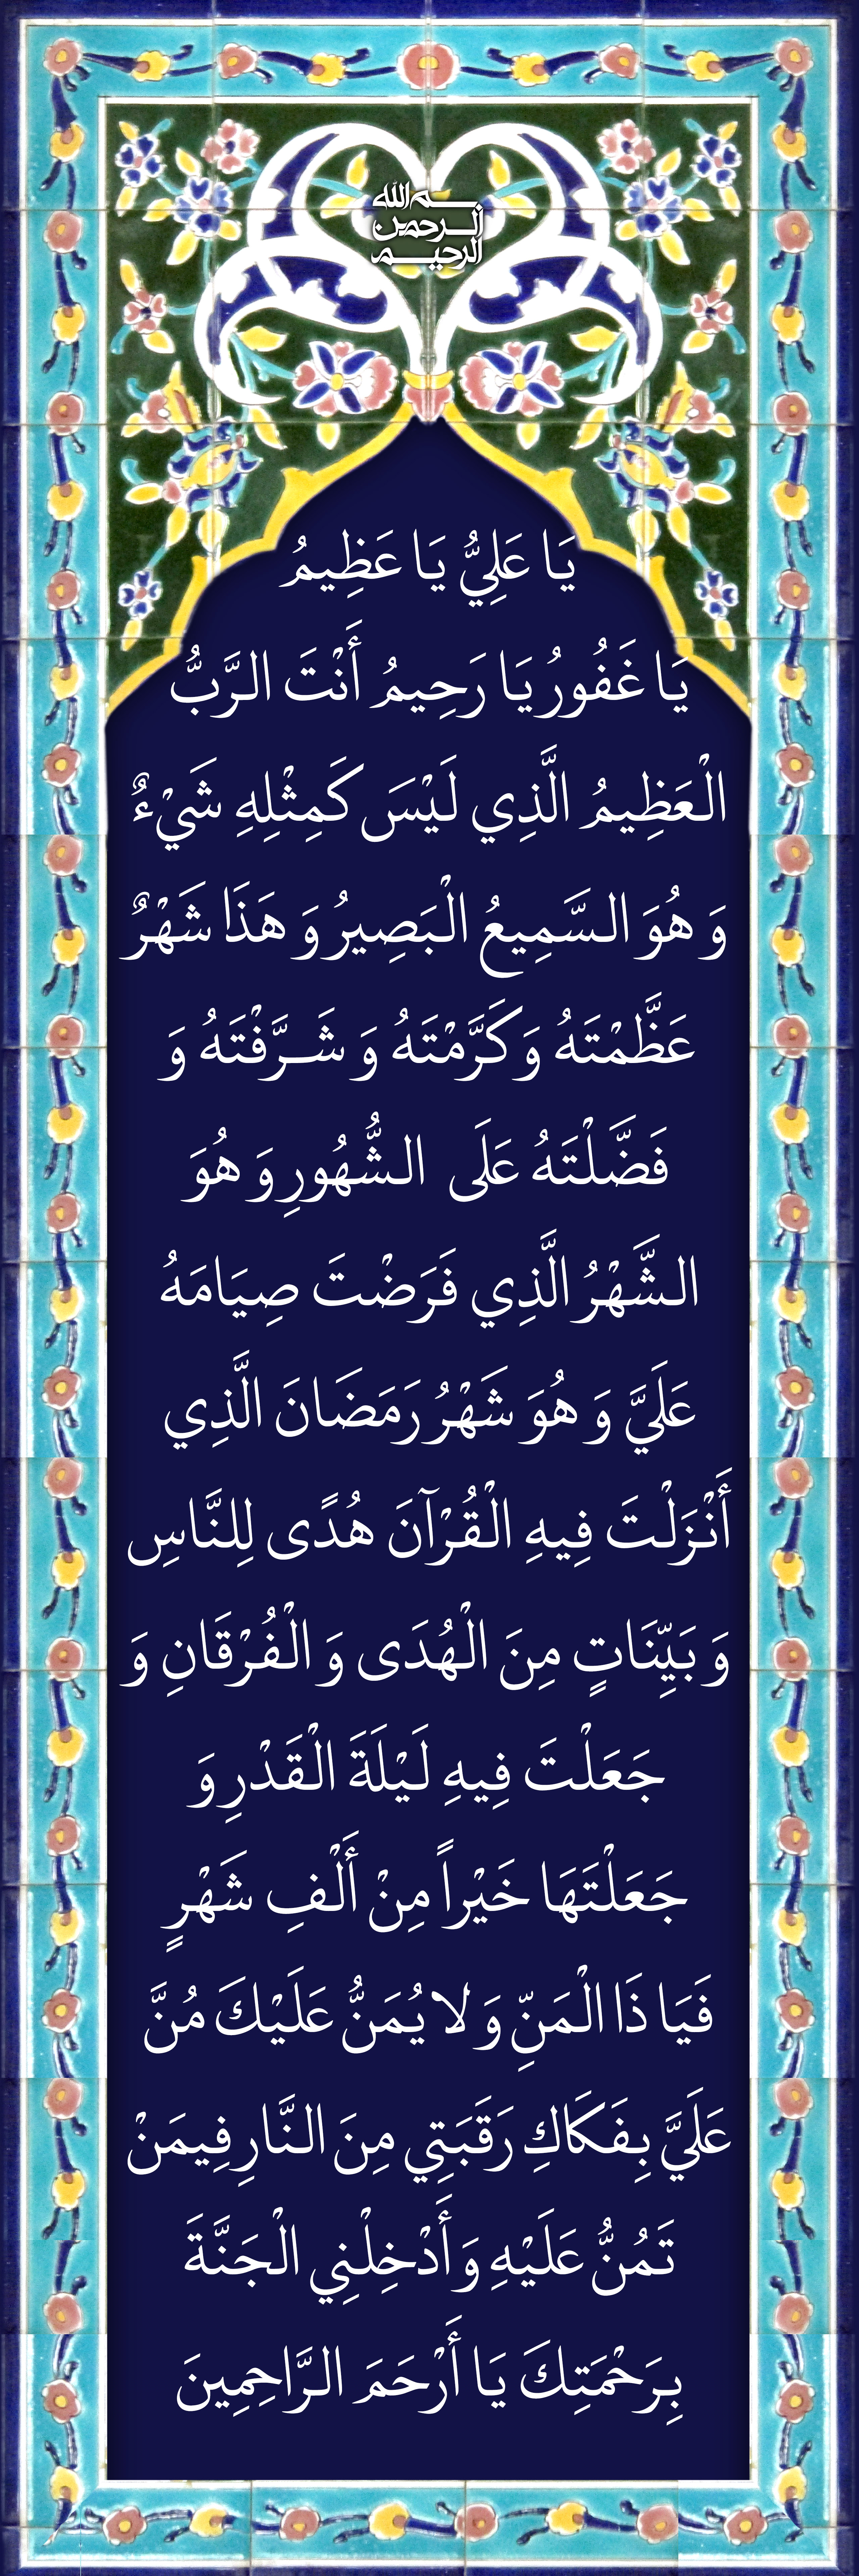 بسم الله
الرحمن
الرحيم
يَا عَلِيُّ يَا عَظِيمُ
يَا غَفُورُ يَا رَحِيمُ أَنْتَ الرَّبُّ
الْعَظِيمُ الَّذِي لَيْسَ كَمِثْلِهِ شَيْءٌ
وَ هُوَ السَّمِيعُ الْبَصِيرُ وَ هَذَا شَهْرٌ
عَظَّمْتَهُ وَ كَرَّمْتَهُ وَ شَرَّفْتَهُ وَ
فَضَّلْتَهُ عَلَى الشُّهُورِ وَ هُوَ
الشَّهْرُ الَّذِي فَرَضْتَ صِيَامَهُ
عَلَيَّ وَ هُوَ شَهْرُ رَمَضَانَ الَّذِي
أَنْزَلْتَ فِيهِ الْقُرْآنَ هُدًى لِلنَّاسِ
وَ بَيِّنَاتٍ مِنَ الْهُدَى وَ الْفُرْقَانِ وَ
جَعَلْتَ فِيهِ لَيْلَةَ الْقَدْرِ وَ
جَعَلْتَهَا خَيْراً مِنْ أَلْفِ شَهْرٍ
فَيَا ذَا الْمَنِّ وَ لا يُمَنُّ عَلَيْكَ مُنَّ
عَلَيَّ بِفَكَاكِ رَقَبَتِي مِنَ النَّارِ فِيمَنْ
تَمُنُّ عَلَيْهِ وَ أَدْخِلْنِي الْجَنَّةَ
بِرَحْمَتِكَ يَا أَرْحَمَ الرَّاحِمِينَ